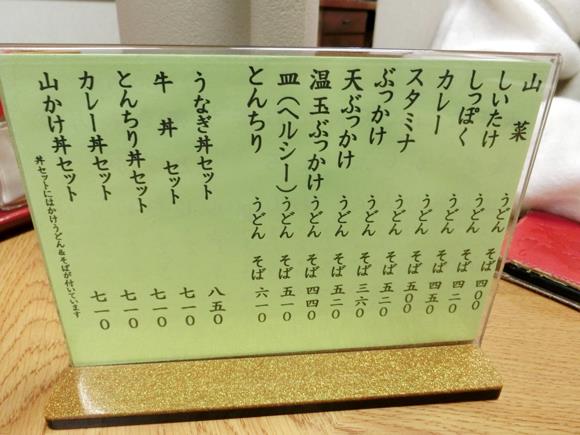 山菜 うどん そば 四〇〇
しいたけ うどん そば 四二〇
しっぽく うどん そば 四五〇
カレー うどん そば 五〇〇
スタミナ うどん そば 五二〇
ぶっかけ うどん そば 三六〇
天ぶっかけ うどん そば 五二〇
温玉ぶっかけ うどん そば 四四〇
皿（ヘルシー） うどん そば 五一〇
とんちり うどん そば 六一〇
うなぎ丼セット 八五〇
牛丼セット 七一〇
とんちり丼セット 七一〇
カレー丼セット 七一〇
山かけ丼セット 七一〇
丼セットにはかけうどん＆そばが付いています